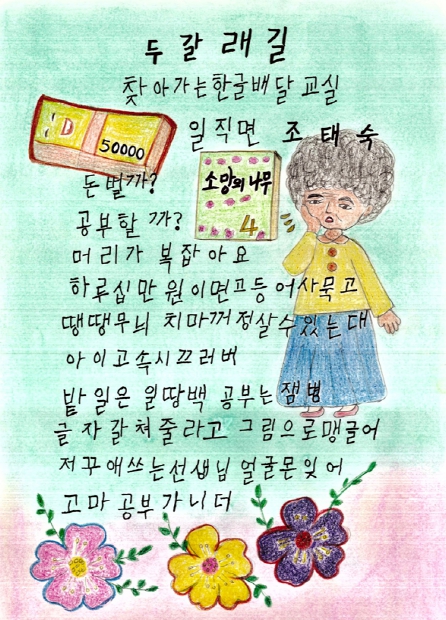 두 갈 래 길
찾아가는한글배달교실
일직면 조태숙
50000
소망의나무
4
돈벌까?
공부할까?
머리가 복잡아요
하루십만원이면프등어사묵고
땡땡무늬 치마꺼정살수있는대
아이고속시끄러버
밭일은 일땅백 공부는잼병
글자갈쳐줄라고 그림으로맹글어
저꾸애쓰는선생님얼굴몬잊어
고마공부가니더